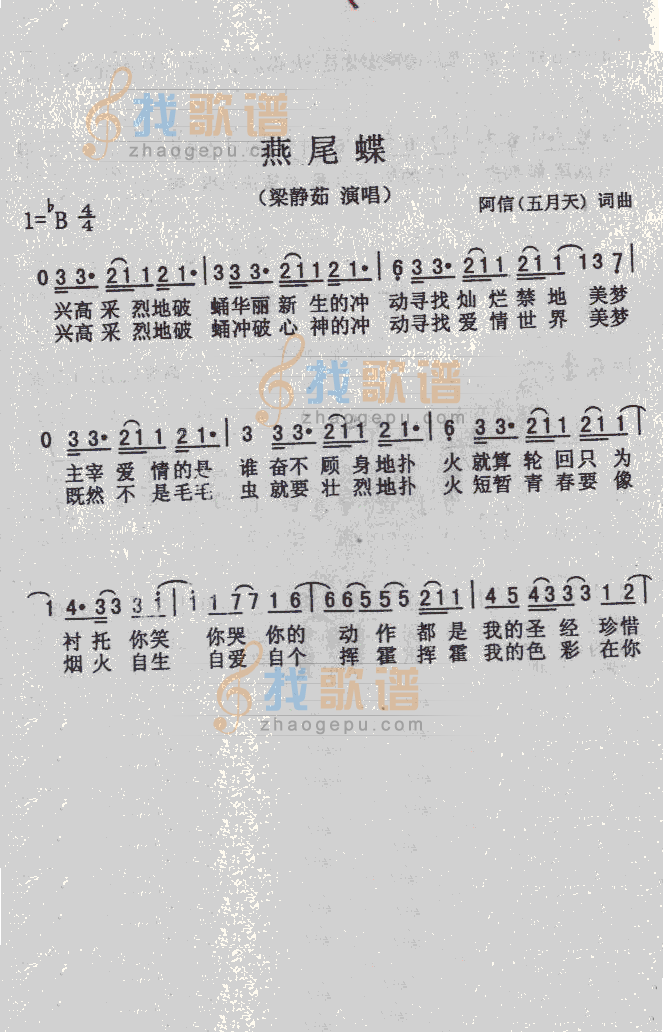 找歌谱
zhaogepu.com
燕尾蝶
（梁静茹 演唱）
阿信（五月天）词曲
1=♭B 4/4
0 3 3· 2 1 1 2 1· | 3 3 3 3· 2 1 1 2 1· | 6 3 3· 2 1 1 2 1 1 1 3 7 |
兴高 采 烈地破 蛹华丽新 生的冲 动寻找灿 烂禁 地 美梦
兴高 采 烈地破 蛹冲破心 神的冲 动寻找爱 情世 界 美梦
找歌谱
zhaogepu.com
0 3 3· 2 1 1 2 1· | 3 3 3· 2 1 1 2 1· | 6 3 3· 2 1 1 2 1 1 |
主宰 爱 情的是 谁 奋不 顾 身地扑 火 就算 轮 回只 为
既然 不 是毛毛 虫 就要 壮 烈地扑 火 短暂 青 春要 像
1 4· 3 3 3 1 | 1 1 7 7 1 6 | 6 6 5 5 5 2 1 1 | 4 5 4 3 3 3 1 2 |
衬托 你笑 你哭 你的 动 作 都 是 我的圣 经 珍惜
烟火 自生 自爱 自个 挥 霍 挥 霍 我的色 彩 在你
找歌谱
zhaogepu.com